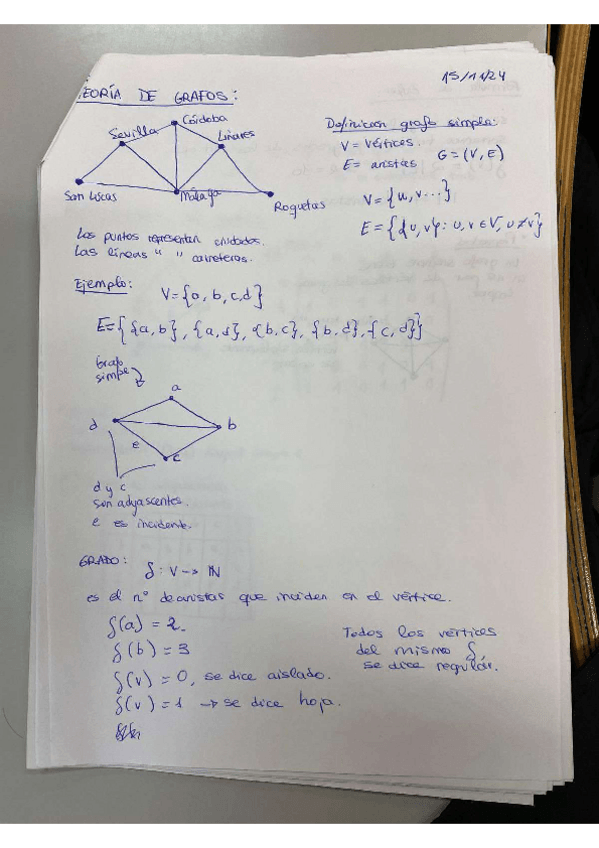 15/11/24
TEORÍA DE GRAFOS:
Córdoba
Sevilla
Linares
San Lucas
Málaga
Roquetas
Definición grafo simple:
V = Vértices.
E = aristas
G = (V, E)
V = {u, v...}
E = {{u, v}: u, v ∈ V, u ≠ v}
Los puntos representan ciudades.
Las líneas " " carreteras.
Ejemplo:
V = {a, b, c, d}
E = {{a, b}, {a, d}, {b, c}, {b, d}, {c, d}}
Grafo
simple
a
d
b
e
c
d y c
son adyascentes.
e es incidente.
GRADO:
δ: V → ℕ
es el nº de aristas que inciden en el vértice.
δ(a) = 2.
δ(b) = 3
δ(v) = 0, se dice aislado.
δ(v) = 1 → se dice hoja.
Todos los vértices
del mismo δ
se dice regular.